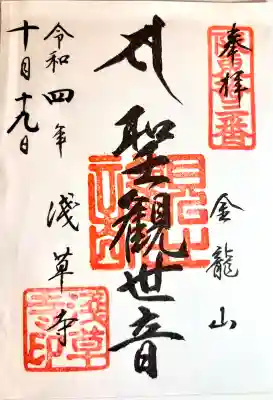 奉拝
坂東十三番
金龍山
聖観世音
浅草寺
浅草寺印
令和四年
十月十九日